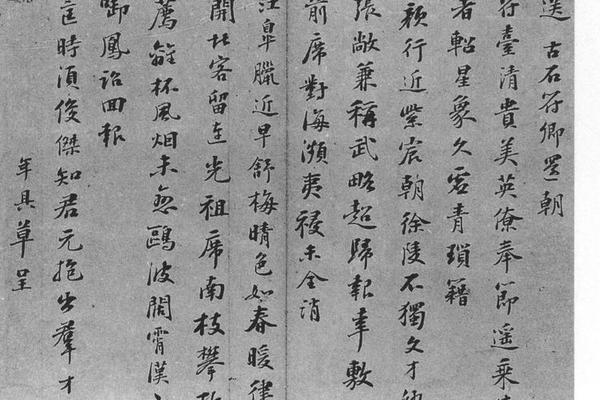 送 古石符卿還朝
符臺清貴美英僚奉節遥乘
者軺星象久客青瑣籍
行近紫宸朝徐陵不獨文才
張敞兼稱武略超歸報聿敷
前席對海瀕夷祲未全消
江皐臘近早舒梅晴色如春暖律
開北客留連光祖席南枝攀
薦離杯風烟未怠鷗波闊霄漢
啣鳳詔回報
匡時須俊傑知君元抱出羣才
年具草呈